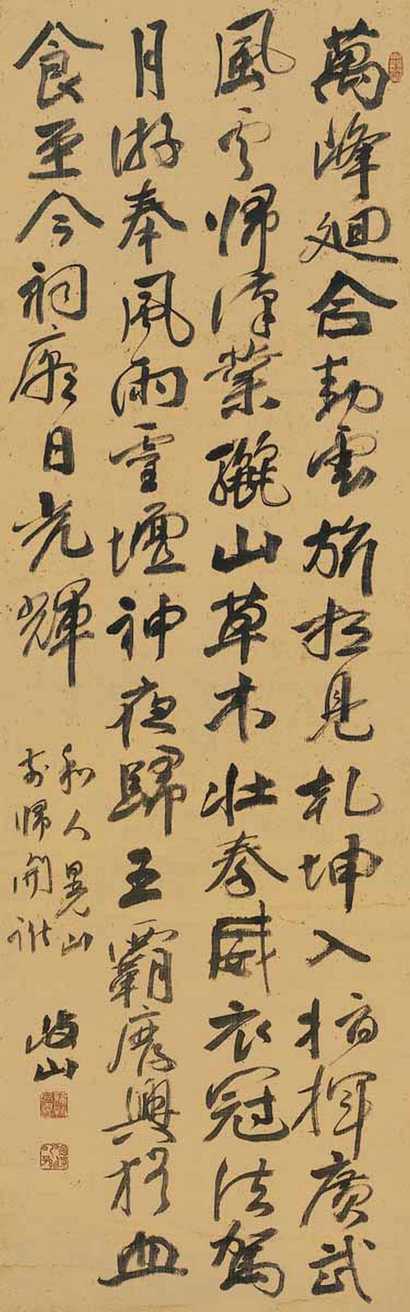 萬峰迴合動雲旂想見乾坤入指揮廣武
風雲歸漢業驪山草木壯秦威衣冠法駕
月游奉風雨靈壇神夜歸王霸廢興猶血
食至今祠廟日光輝
和人晃山